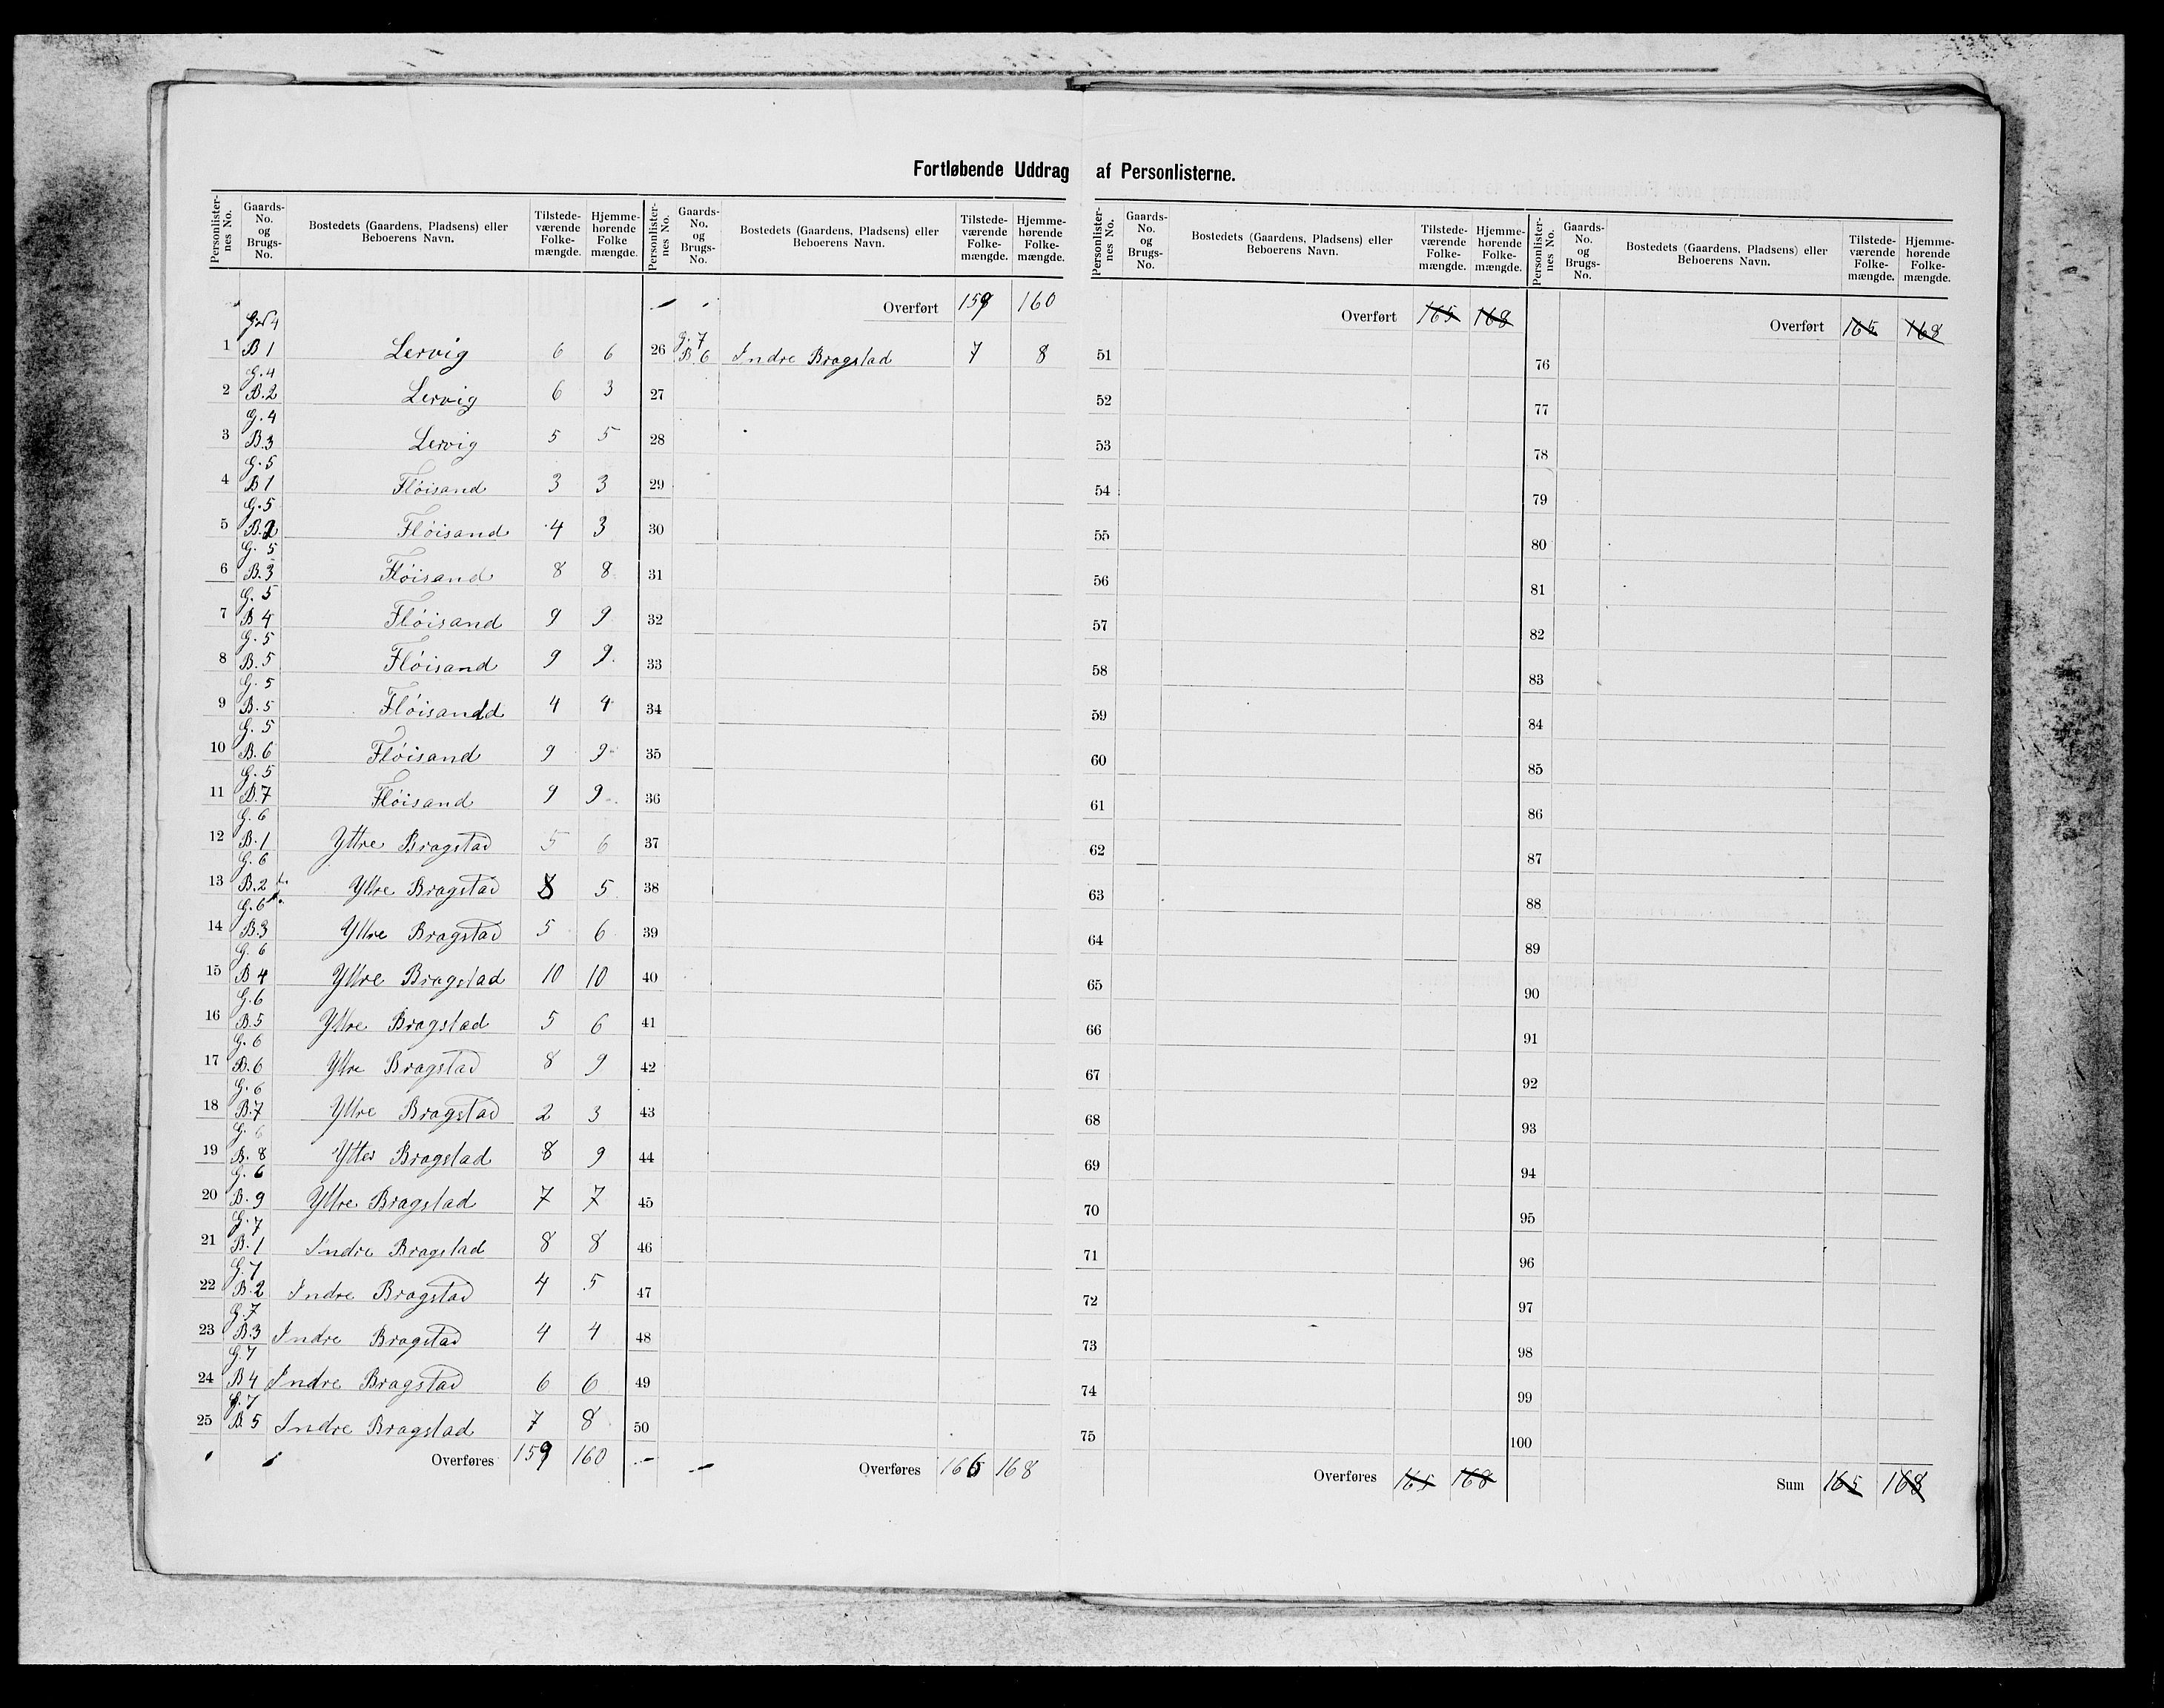 Fortløbende Uddrag af Personlisterne.
Personlister-nes No. Gaards-No. og Brugs-No. Bostedets (Gaardens, Pladsens) eller Beboerens Navn. Tilstede-værende Folke-mængde. Hjemme-hørende Folke mængde.
G. 4
1 B 1 Lervig 6 6
G. 4
2 B. 2 Lervig 6 3
G. 4
3 B. 3 Lervig 5 5
G. 5
4 B 1 Fløisand 3 3
G. 5
5 B. 2 Fløisand 4 3
G. 5
6 B. 3 Fløisand 8 8
G. 5
7 B 4 Fløisand 9 9
G. 5
8 B. 5 Fløisand 9 9.
G. 5
9 B. 5 Fløisand 4 4
G. 5
10 B. 6 Fløisand 9 9
G. 5
11 B. 7 Fløisand 9 9
G. 6
12 B. 1 Yttre Bragstad 5 6
G. 6
13 B. 2 Yttre Bragstad 8 5
G. 6
14 B. 3 Yttre Bragstad 5 6
G. 6
15 B 4 Yttre Bragstad 10 10
G. 6
16 B. 5 Yttre Bragstad 5 6
G. 6
17 B. 6 Yttre Bragstad 8 9
G. 6
18 B. 7 Yttre Bragstad 2 3
G. 6
19 B. 8 Ytter Bragstad 8 9
G. 6
20 B. 9 Yttre Bragstad 7 7
G. 7
21 B. 1 Indre Bragstad 8 8
G. 7
22 B. 2 Indre Bragstad 4 5
G. 7
23 B. 3 Indre Bragstad 4 4
G. 7
24 B 4 Indre Bragstad 6 6
G. 7
25 B. 5 Indre Bragstad 7 8
Overføres 159 160
Personlister-nes No. Gaards-No. og Brugs-No. Bostedets (Gaardens, Pladsens) eller Beboerens Navn. Tilstede-værende Folke-mængde. Hjemme-hørende Folke-mængde.
Overført 159 160
G. 7
26 B. 6 Indre Bragstad 7 8
27
28
29
30
31
32
33
34
35
36
37
38
39
40
41
42
43
44
45
46
47
48
49
50
Overføres 166 168
Personlister-nes No. Gaards-No. og Brugs-No. Bostedets (Gaardens, Pladsens) eller Beboerens Navn. Tilstede-værende Folke-mængde. Hjemme-hørende Folke-mængde.
Overført 165 168
51
52
53
54
55
56
57
58
59
60
61
62
63
64
65
66
67
68
69
70
71
72
73
74
75
Overføres 165 168
Personlister-nes No. Gaards-No. og Brugs-No. Bostedets (Gaardens, Pladsens) eller Beboerens Navn. Tilstede-værende Folke-mængde. Hjemme-hørende Folke-mængde.
Overført 165 168
76
77
78
79
80
81
82
83
84
85
86
87
88
89
90
91
92
93
94
95
96
97
98
99
100
Sum 165 168